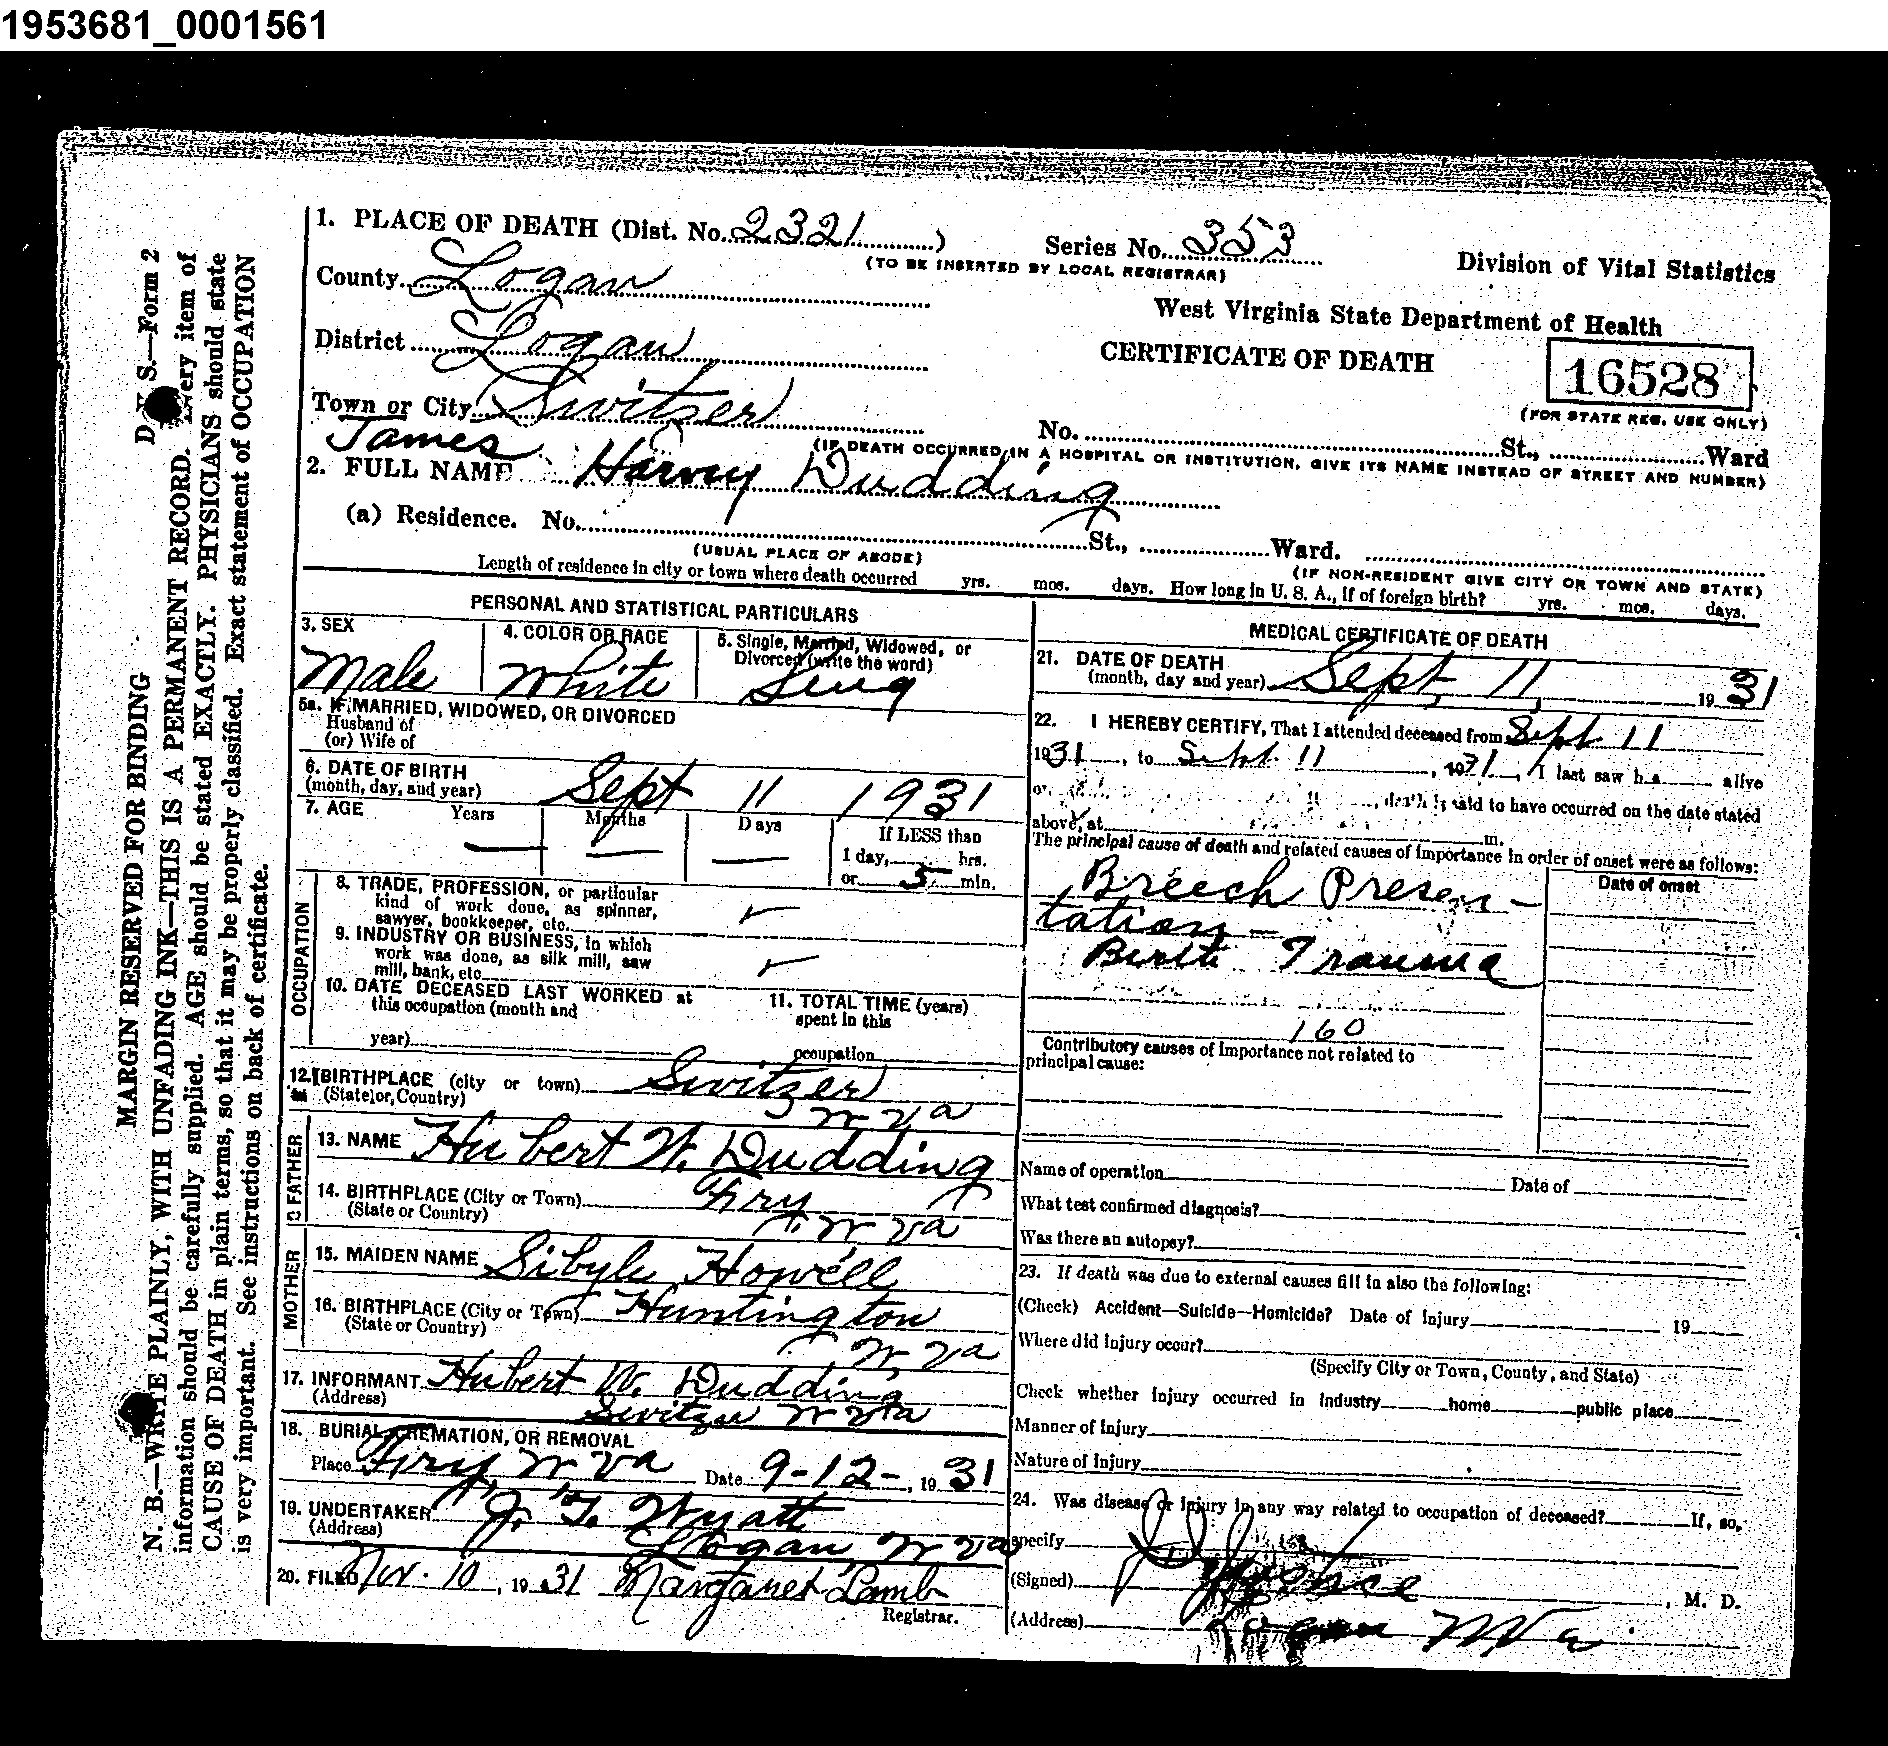 1953681_0001561
1. PLACE OF DEATH (Dist. No. 2321)
Series No. 353
(TO BE INSERTED BY LOCAL REGISTRAR)
Division of Vital Statistics
County Logan
West Virginia State Department of Health
District Logan
CERTIFICATE OF DEATH
16528
(FOR STATE REG. USE ONLY)
Town or City Switzer
No. St., Ward
(IF DEATH OCCURRED IN A HOSPITAL OR INSTITUTION, GIVE ITS NAME INSTEAD OF STREET AND NUMBER)
James
2. FULL NAME Harvey Dudding
(a) Residence. No. St., Ward.
(USUAL PLACE OF ABODE)
(IF NON-RESIDENT GIVE CITY OR TOWN AND STATE)
Length of residence in city or town where death occurred yrs. mos. days. How long in U. S. A., if of foreign birth? yrs. mos. days.
PERSONAL AND STATISTICAL PARTICULARS
3. SEX
Male
4. COLOR OR RACE
White
5. Single, Married, Widowed, or
Divorced (write the word)
Sing
5a. IF MARRIED, WIDOWED, OR DIVORCED
Husband of
(or) Wife of
6. DATE OF BIRTH
(month, day, and year) Sept 11 1931
7. AGE Years Months Days
If LESS than
1 day, hrs.
or 5 min.
OCCUPATION
8. TRADE, PROFESSION, or particular
kind of work done, as spinner,
sawyer, bookkeeper, etc.
9. INDUSTRY OR BUSINESS, in which
work was done, as silk mill, saw
mill, bank, etc
10. DATE DECEASED LAST WORKED at
this occupation (month and
year)
11. TOTAL TIME (years)
spent in this
occupation
12. BIRTHPLACE (city or town) Switzer
(State or Country) W Va
FATHER
13. NAME Hubert W. Dudding
14. BIRTHPLACE (City or Town) Fry
(State or Country) W Va
MOTHER
15. MAIDEN NAME Sibyle Howell
16. BIRTHPLACE (City or Town) Huntington
(State or Country) W Va
17. INFORMANT Hubert W. Dudding
(Address) Switzer W Va
18. BURIAL, CREMATION, OR REMOVAL
Place Fry, W Va Date 9-12-, 1931
19. UNDERTAKER J. T. Wyatt
(Address) Logan, W Va
20. FILED Nov. 10, 1931 Margaret Lamb
Registrar.
MEDICAL CERTIFICATE OF DEATH
21. DATE OF DEATH
(month, day and year) Sept, 11, 1931
22. I HEREBY CERTIFY, That I attended deceased from Sept 11
1931, to Sept. 11, 1931, I last saw h a alive
on , death is said to have occurred on the date stated
above, at m.
The principal cause of death and related causes of importance in order of onset were as follows:
Date of onset
Breech Presen-
tation -
Birth Trauma
160
Contributory causes of importance not related to
principal cause:
Name of operation Date of
What test confirmed diagnosis?
Was there an autopsy?
23. If death was due to external causes fill in also the following:
(Check) Accident—Suicide—Homicide? Date of injury 19
Where did injury occur?
(Specify City or Town, County, and State)
Check whether injury occurred in industry home public place
Manner of injury
Nature of injury
24. Was disease or injury in any way related to occupation of deceased? If, so,
specify
(Signed) , M. D.
(Address) Logan W Va
MARGIN RESERVED FOR BINDING
D. V. S.—Form 2
N. B.—WRITE PLAINLY, WITH UNFADING INK—THIS IS A PERMANENT RECORD. Every item of
information should be carefully supplied. AGE should be stated EXACTLY. PHYSICIANS should state
CAUSE OF DEATH in plain terms, so that it may be properly classified. Exact statement of OCCUPATION
is very important. See instructions on back of certificate.